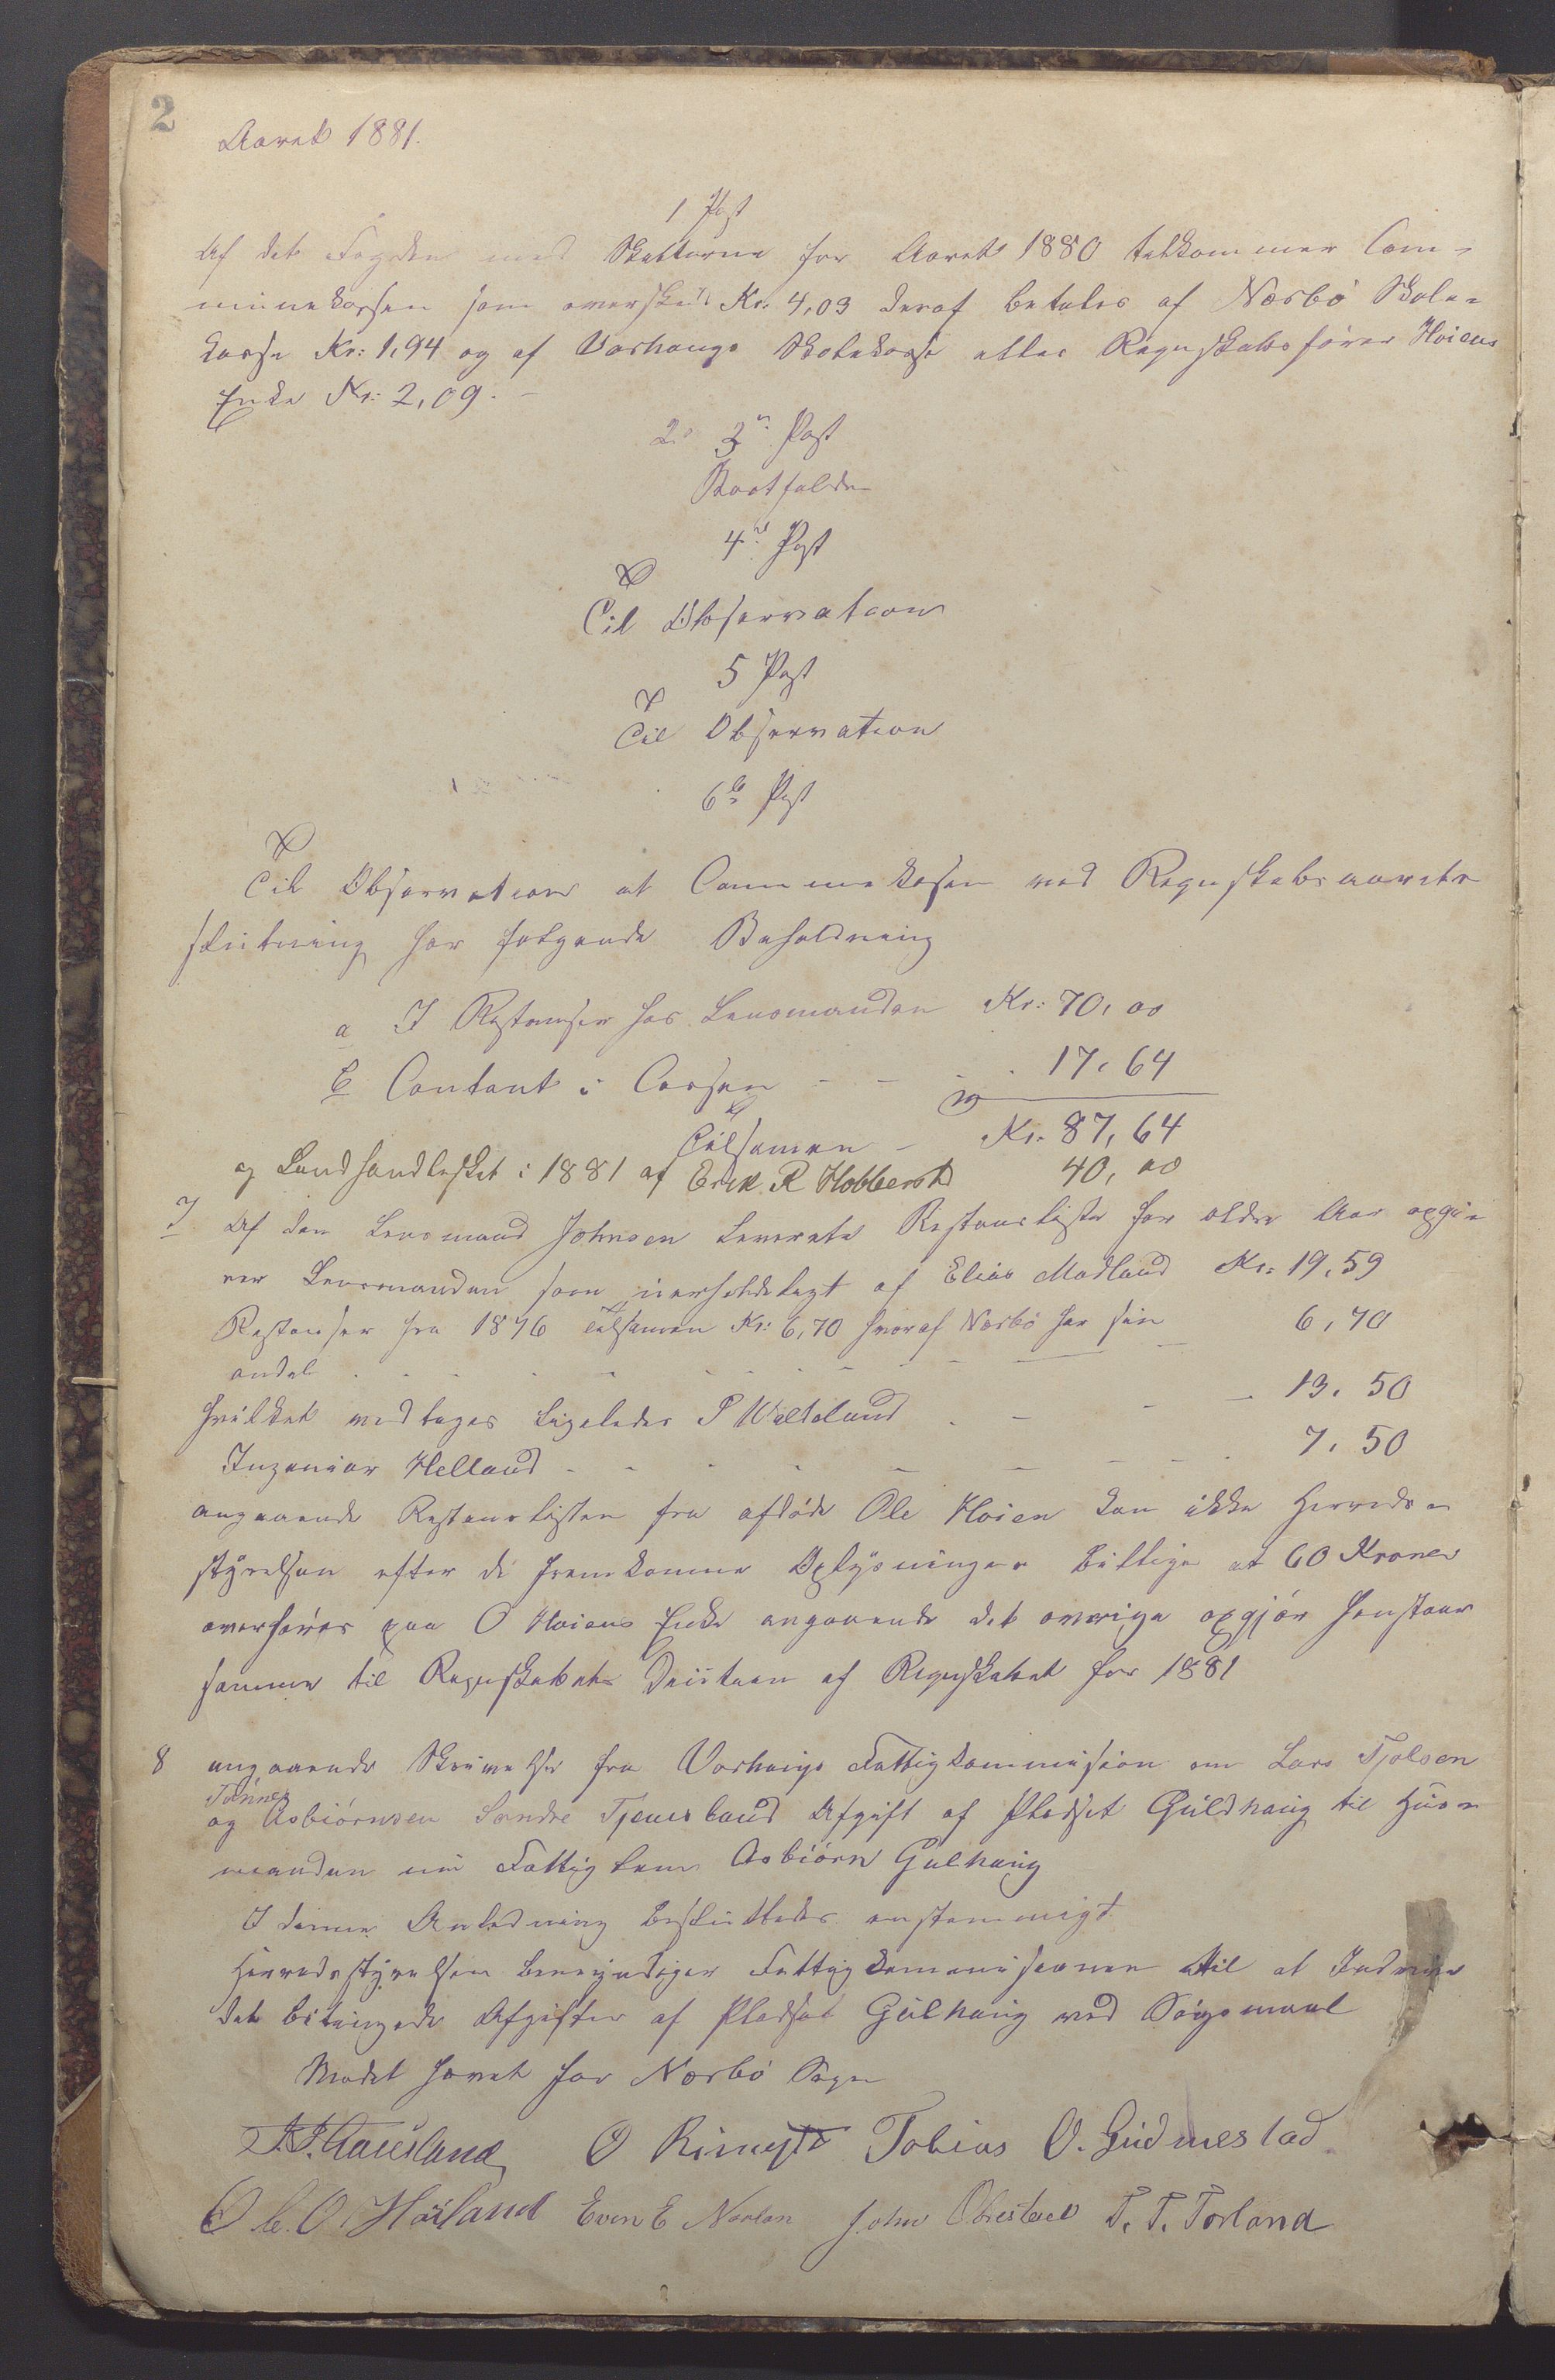 2
Aaret 1881.
1 Post
Af det Fogden med Skatterne for Aaret 1880 tilkommer Com-
munekassen som overskud Kr. 4,03 deraf betales af Nærbø Skole-
kasse Kr: 1,94 og af Varhaugs Skolekasse eller Regnskabsfører Høiens
Enke Kr: 2,09.-
2. 3die Post
Bortfalder
4de Post
Til Observation
5 Post
Til Observation
6te Post
Til Observation at Communekassen ved Regnskabsaarets
slutning har følgende Beholdning
a I Restanser hos Lensmanden Kr: 70,00
b Contant i Cassen - - - 17,64
Tilsamen - Kr. 87,64
og Landhandlerskat i 1881 af Erik R Hobberstd 40,00
7 Af den Lensmand Johnsen leverete Restanseliste for eldre Aar opgi-
ver Lensmanden som uerholdeligt af Elias Madland Kr: 19,59
Restanser fra 1876 tilsamen Kr: 6,70 hvoraf Nærbø har sin 6,70
andel
hvilket vedtages ligeledes P Walteland - 13.50
Ingeniør Helland - 7.50
angaaende Restanselisten fra afdøde Ole Høien kan ikke Herreds-
styrelsen efter de fremkomne Oplysninger billige at 60 Kroner
overføres paa O Høiens Enke angaaende det øvrige opgjør henstaar
samme til Regnskabets af Regnskabet for 1881
8 angaaende Skrivelse fra Varhaugs Fattigkommission om Lars Tjølsen
Tønnes
og Asbiørnsen Søndre Tjensland Afgift af Pladset Guldhaug til Huus-
manden nu Fattiglem Asbiørn Gulhaug
I denne Anledning besluttedes enstemmigt
Herredsstyrelsen bemyndiger Fattigkommisionen til at Indrive
det betingede Afgifter af Pladset Gulhaug ved Søgsmaal
Mødet hævet for Nærbø Sogn
O Rimestd Tobias O. Gudmestad
Ole. O. Høiland Even E Nærlan John Obrestad T. T. Torland